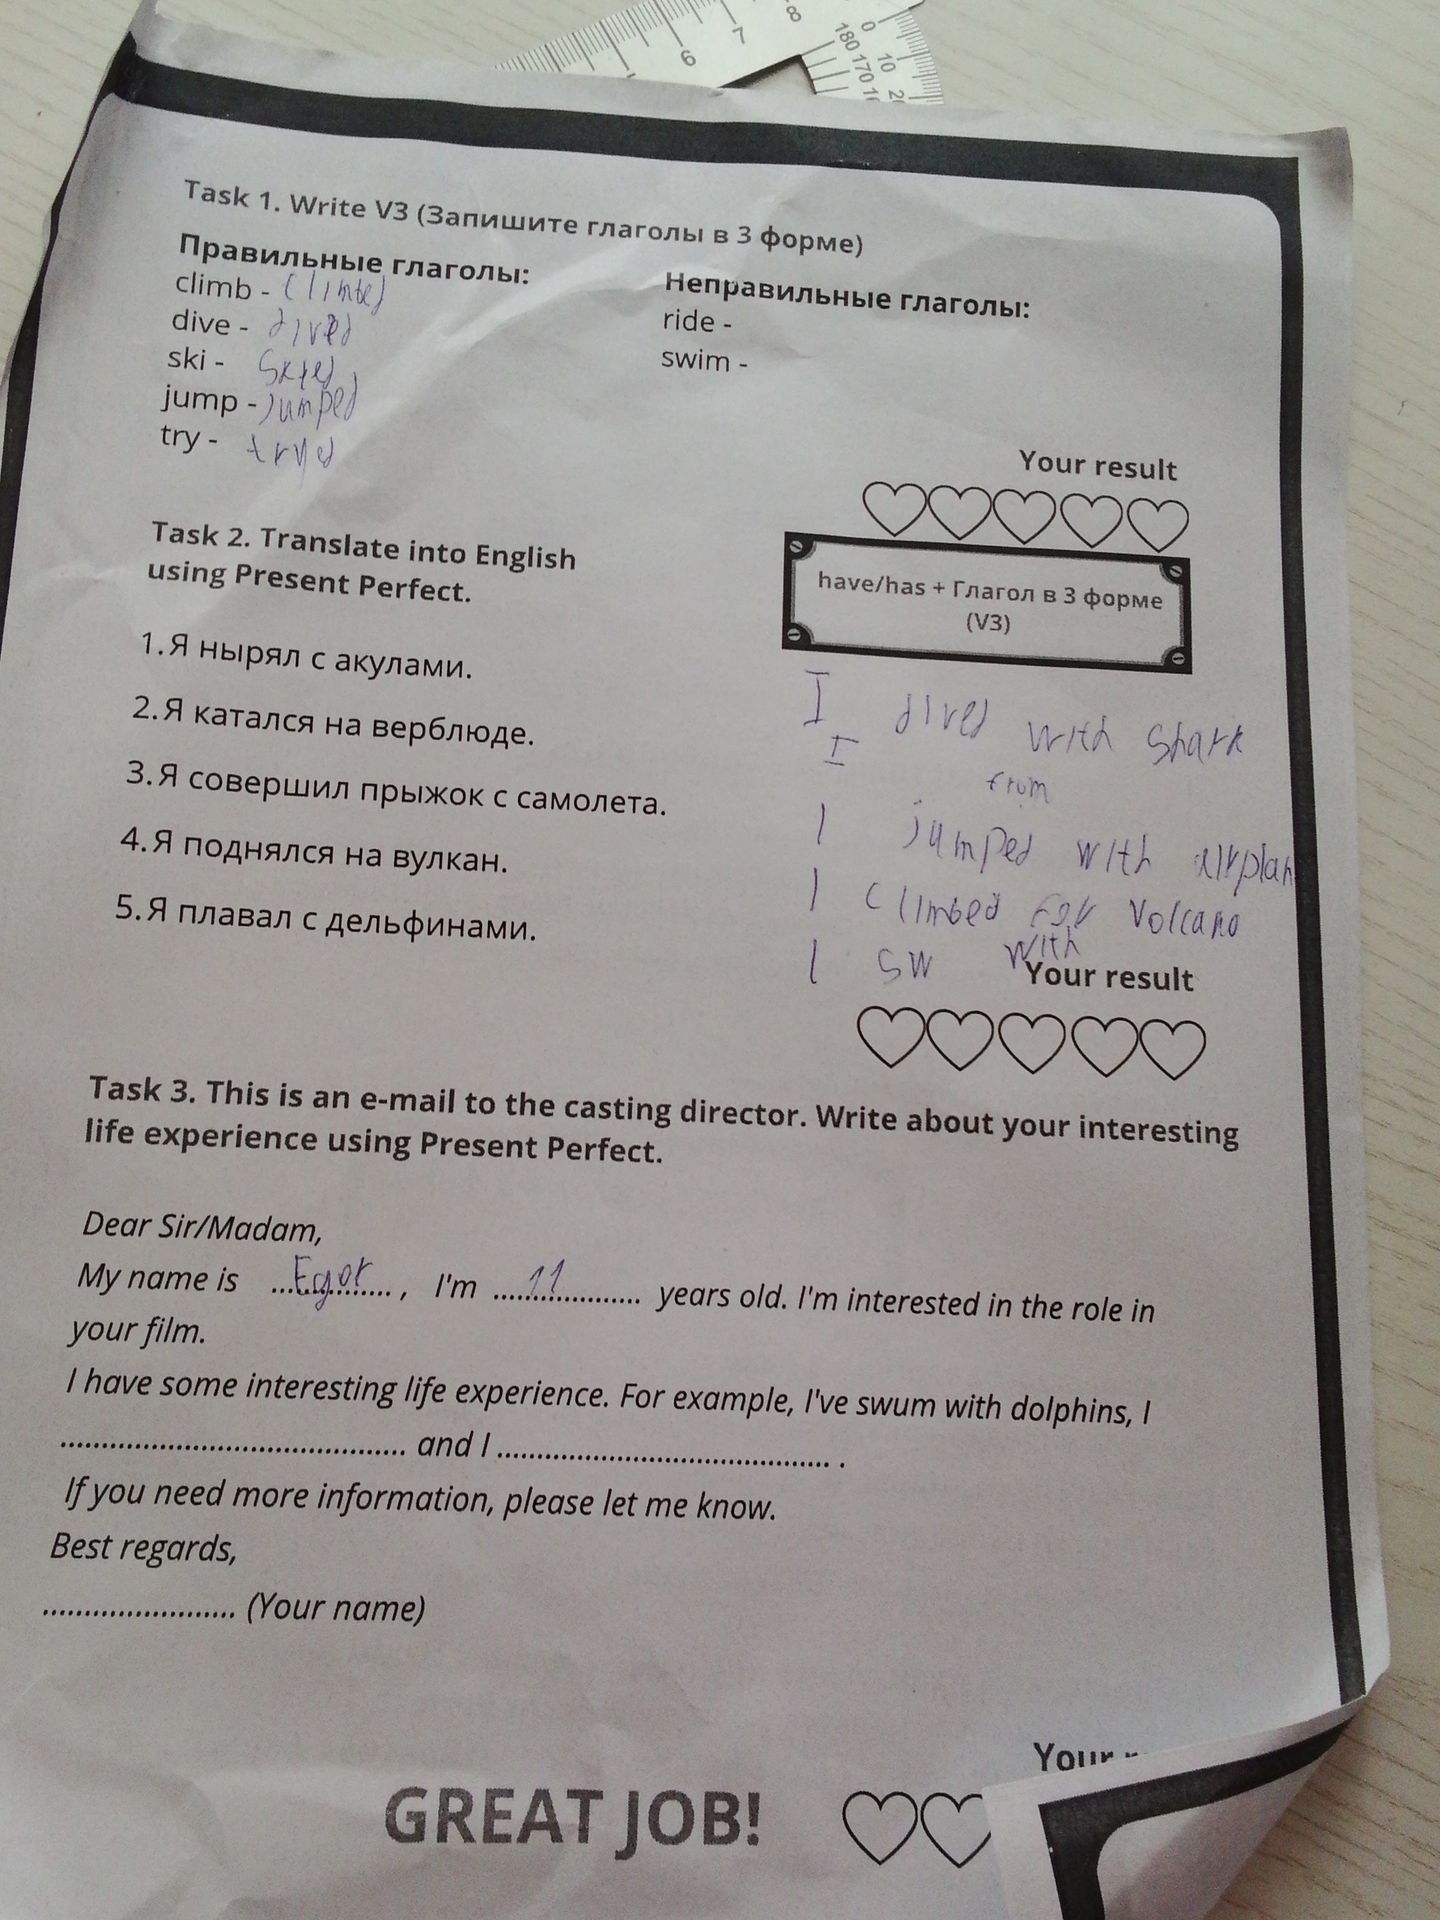 6 7 8
0 10 20
180 170 16
Task 1. Write V3 (Запишите глаголы в 3 форме)
Правильные глаголы:
climb - climbed
dive - dived
ski - skied
jump - jumped
try - tryed
Неправильные глаголы:
ride -
swim -
Your result
Task 2. Translate into English
using Present Perfect.
have/has + Глагол в 3 форме
(V3)
1. Я нырял с акулами.
2. Я катался на верблюде.
3. Я совершил прыжок с самолета.
4. Я поднялся на вулкан.
5. Я плавал с дельфинами.
I dived with shark
I
from
I jumped with airplan
I climbed for volcano
I sw with
Your result
Task 3. This is an e-mail to the casting director. Write about your interesting
life experience using Present Perfect.
Dear Sir/Madam,
My name is ....Egor...., I'm ....11.... years old. I'm interested in the role in
your film.
I have some interesting life experience. For example, I've swum with dolphins, I
.......................................... and I ........................................ .
If you need more information, please let me know.
Best regards,
....................... (Your name)
Your
GREAT JOB!